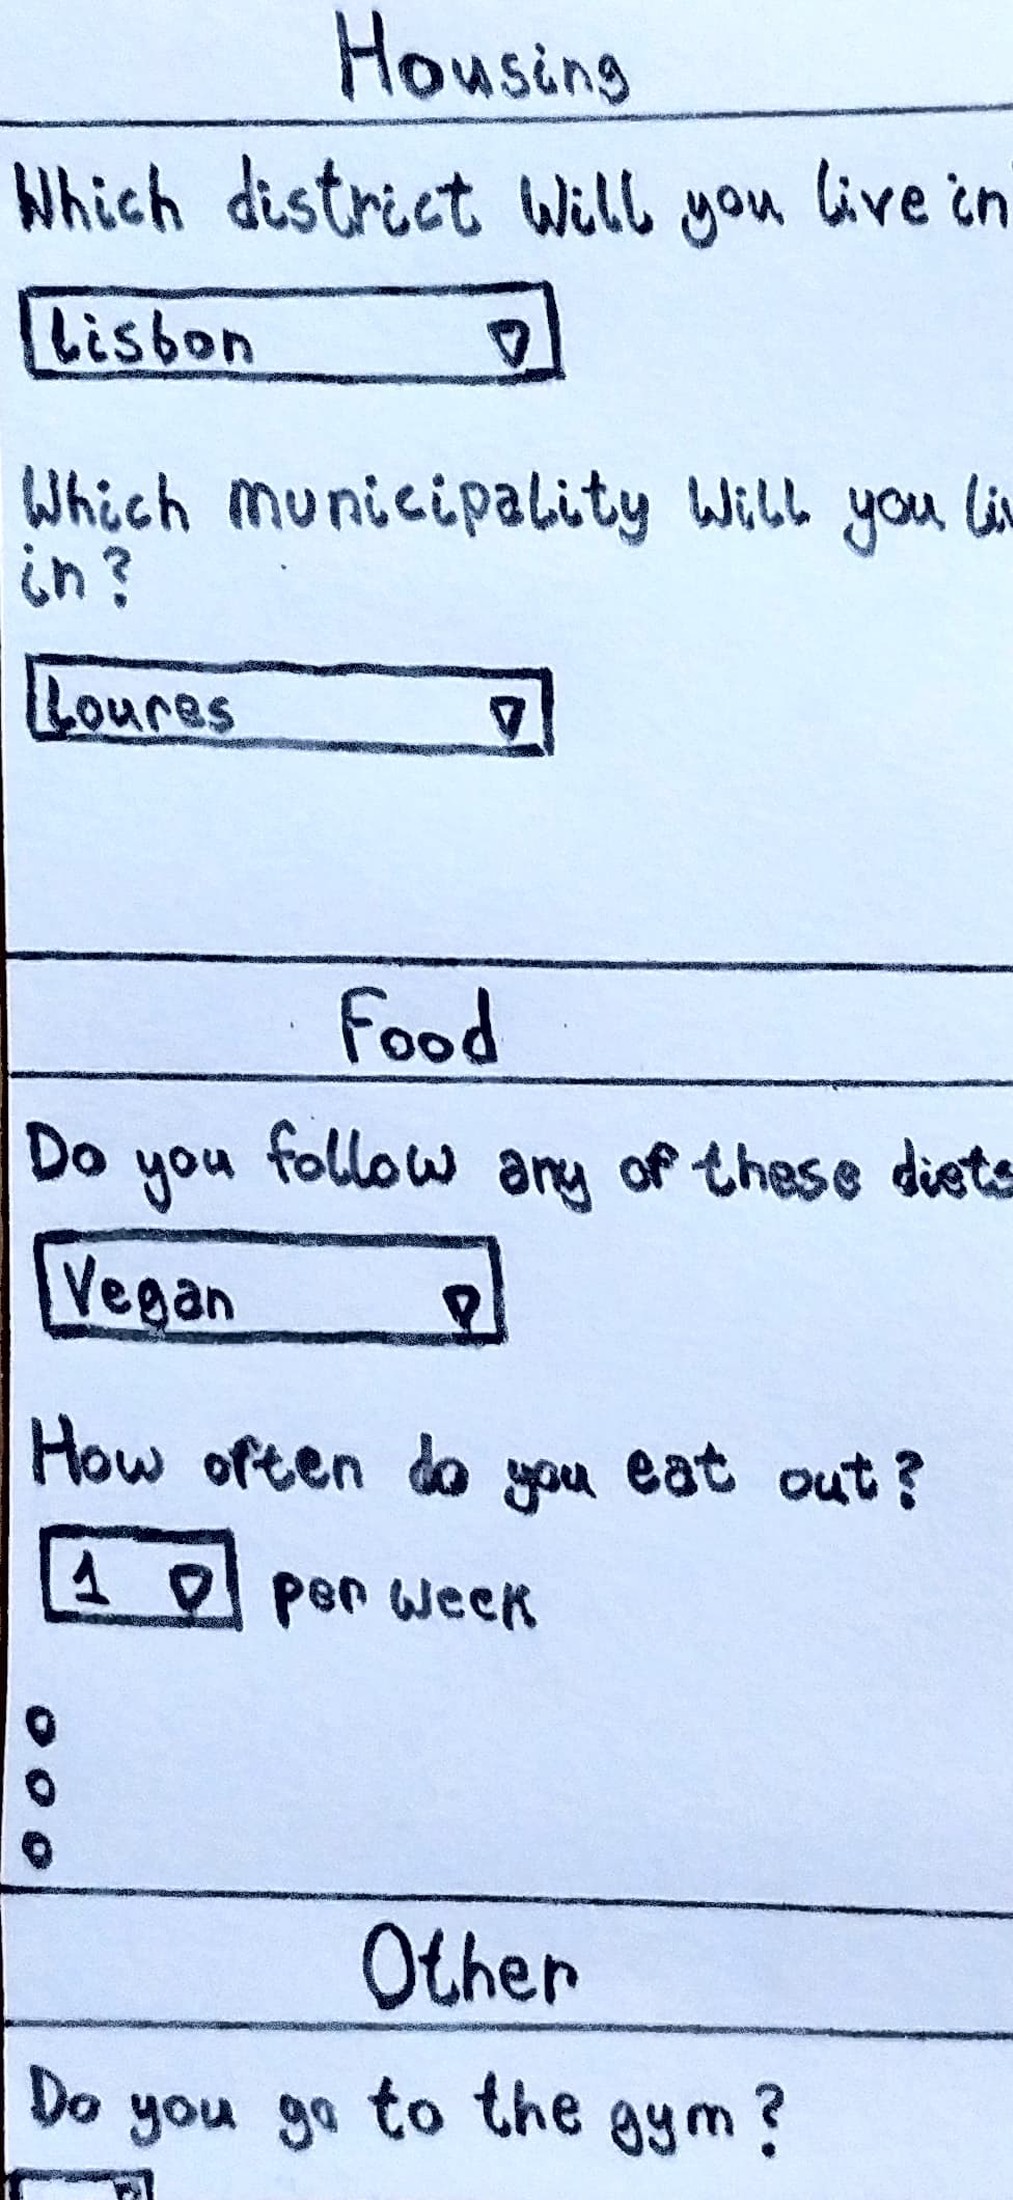 Housing
Which district Will you live in
Lisbon
Which municipality Will you
in?
Loures
Food
Do you follow any of these diets
Vegan
How often do you eat out?
1 per week
Other
Do you go to the gym?